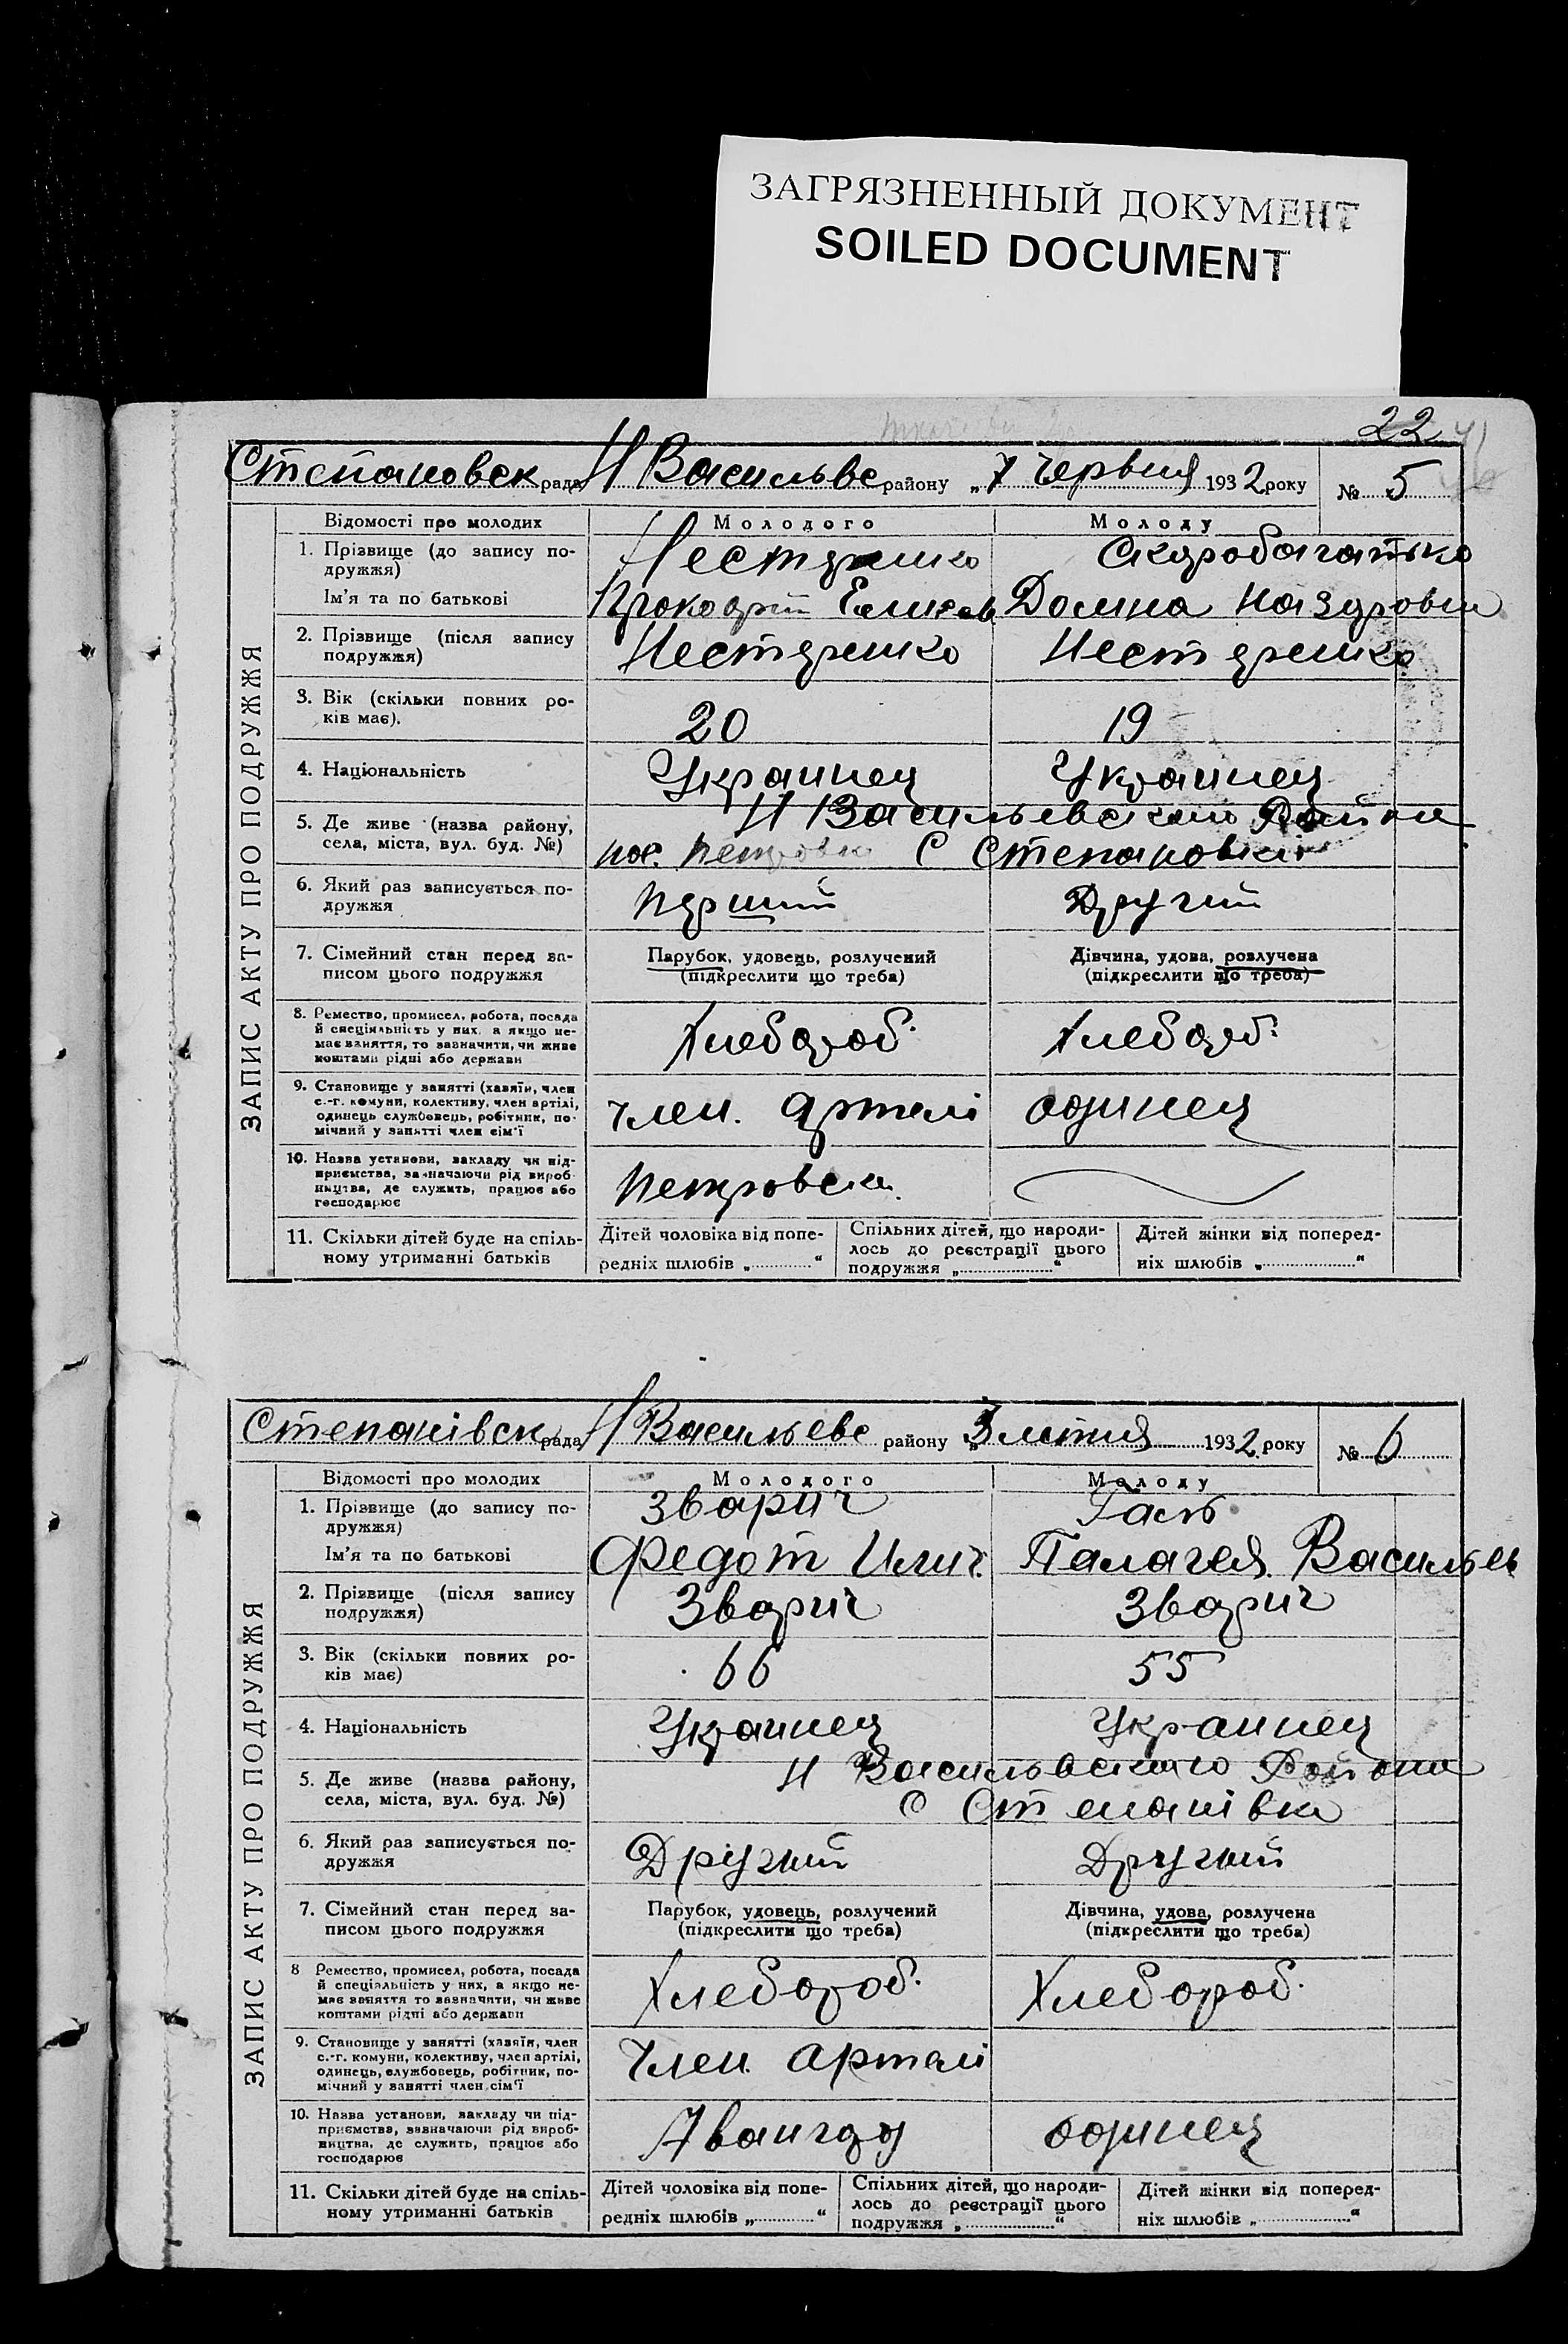 ЗАГРЯЗНЕННЫЙ ДОКУМЕНТ
SOILED DOCUMENT
22
Степановск рада Н Васильве району „7 червня 1932 року № 5
ЗАПИС АКТУ ПРО ПОДРУЖЖЯ
Відомості про молодих Молодого Молоду
1. Прізвище (до запису по-
дружжя) Нестеренко Скоробагатько
Ім'я та по батькові Прокофій Домна
2. Прізвище (після запису
подружжя) Нестеренко Нестеренко
3. Вік (скільки повних ро-
ків має). 20 19
4. Національність Украинец Украинец
5. Де живе (назва району, Н Васильевский Района
села, міста, вул. буд. №) пос. Петровка С Степановка
6. Який раз записується по-
дружжя перший Другий
7. Сімейний стан перед за-
писом цього подружжя
Парубок, удовець, розлучений
(підкреслити що треба)
Дівчина, удова, розлучена
(підкреслити що треба)
8. Ремество, промисел, робота, посада
й спеціяльність у них, а якщо не-
має заняття, то зазначити, чи живе
коштами рідні або держави
Хлебороб. Хлебороб.
9. Становище у занятті (хазяїн, член
с.-г. комуни, колективу, член артілі,
одинець службовець, робітник, по-
мічний у занятті член сім'ї
член. артели одинец
10. Назва установи, закладу чи під-
приємства, зазначаючи рід вироб-
ництва, де служить, працює або
господарює
Петровски
11. Скільки дітей буде на спіль-
ному утриманні батьків
Дітей чоловіка від попе-
редніх шлюбів „ “
Спільних дітей, що народи-
лось до реєстрації цього
подружжя „ “
Дітей жінки від поперед-
ніх шлюбів „ “
Степанівск рада Н Васильеве району „3 литня 1932 року № 6
ЗАПИС АКТУ ПРО ПОДРУЖЖЯ
Відомості про молодих Молодого Молоду
1. Прізвище (до запису по-
дружжя) Зварич Галь
Ім'я та по батькові Федот Илич. Палагея Васильев
2. Прізвище (після запису
подружжя) Зварич Зварич
3. Вік (скільки повних ро-
ків має) 66 55
4. Національність Украинец Украинец
5. Де живе (назва району, Н Васильвского Района
села, міста, вул. буд. №) С Степанівка
6. Який раз записується по-
дружжя Другий Другий
7. Сімейний стан перед за-
писом цього подружжя
Парубок, удовець, розлучений
(підкреслити що треба)
Дівчина, удова, розлучена
(підкреслити що треба)
8 Ремество, промисел, робота, посада
й спеціяльність у них, а якщо не-
має заняття то зазначити, чи живе
коштами рідні або держави
Хлебороб. Хлебороб.
9. Становище у занятті (хазяїн, член
с.-г. комуни, колективу, член артілі,
одинець, службовець, робітник, по-
мічний у занятті член сім'ї
член артели
10. Назва установи, закладу чи під-
приємства, зазначаючи рід вироб-
ництва, де служить, працює або
господарює
Авангрд одинец
11. Скільки дітей буде на спіль-
ному утриманні батьків
Дітей чоловіка від попе-
редніх шлюбів „ “
Спільних дітей, що народи-
лось до реєстрації цього
подружжя „ “
Дітей жінки від поперед-
ніх шлюбів „ “